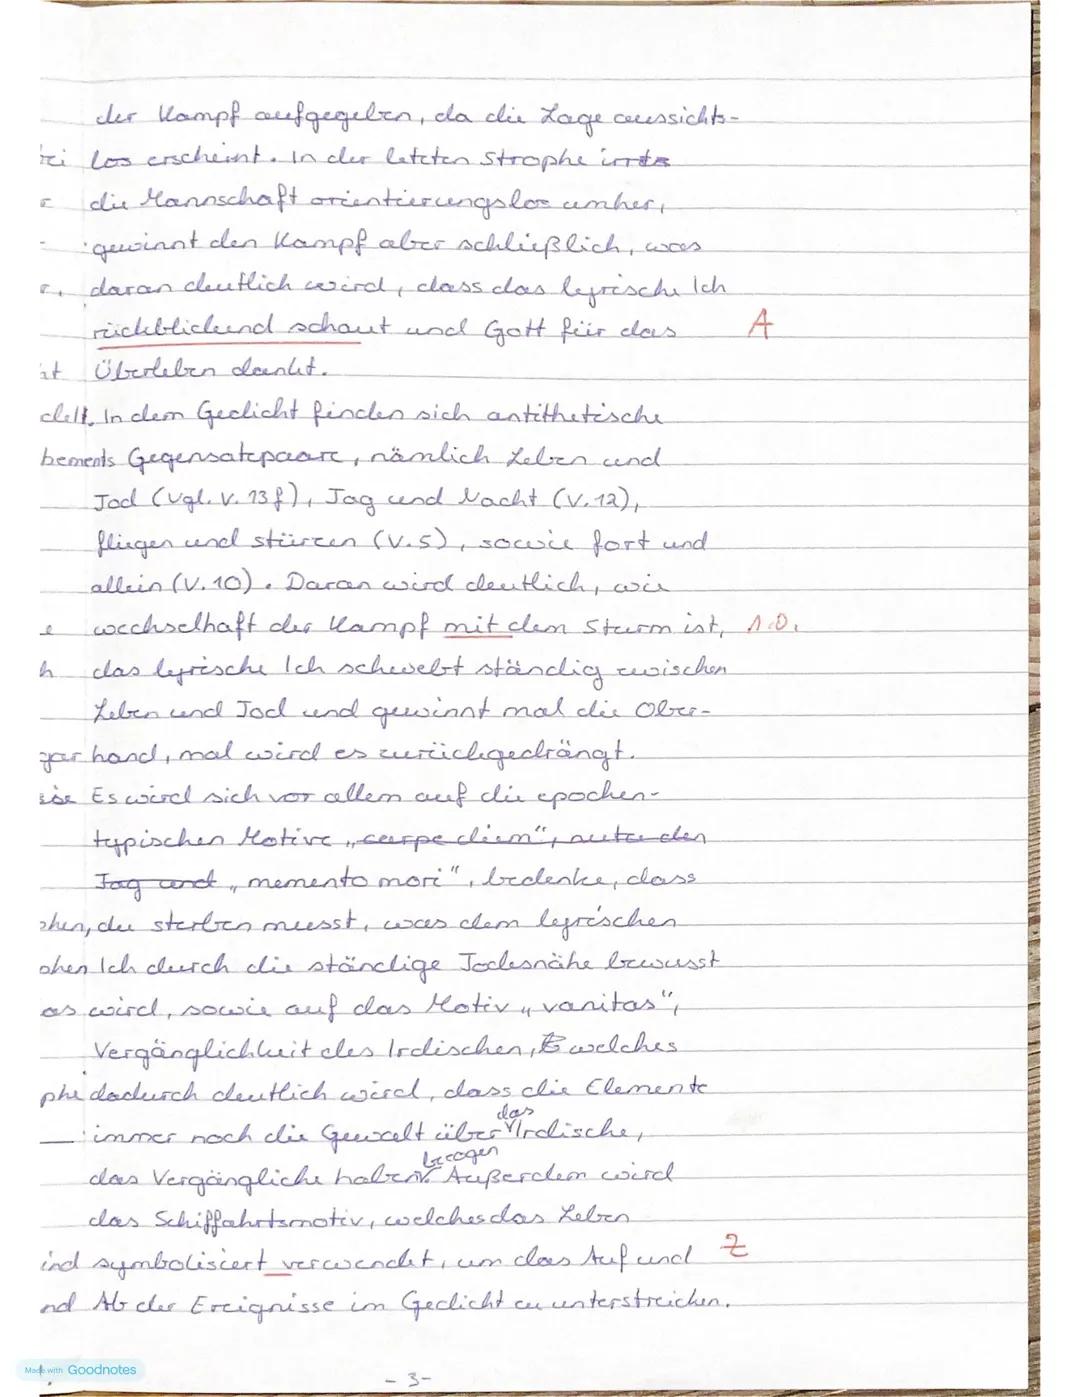 der Kampf aufgegeben, da die Lage aussichts-
los erscheint. In der letzten Strophe irrte
die Mannschaft orientierungslos umher,
gewinnt den Kampf aber schließlich, was
daran deutlich wird, dass das lyrische Ich
rückblickend schaut und Gott für das A
Überleben dankt.
In dem Gedicht finden sich antithetische
bements Gegensatzpaare, nämlich Leben und
Tod (Vgl. V. 13f), Tag und Nacht (V. 12),
fliegen und stürzen (V. 5), sowie fort und
allein (V. 10). Daran wird deutlich, wie
wechselhaft der Kampf mit dem Sturm ist, n.O.
das lyrische Ich schwebt ständig zwischen
Leben und Tod und gewinnt mal die Ober-
hand, mal wird es zurückgedrängt.
Es wird sich vor allem auf die epochen-
typischen Motive „carpe diem", nutze den
Tag und „memento mori", bedenke, dass
du sterben musst, was dem lyrischen
Ich durch die ständige Todesnähe bewusst
wird, sowie auf das Motiv „vanitas",
Vergänglichkeit des Irdischen, welches
phe dadurch deutlich wird, dass die Elemente
immer noch die Gewalt über das Irdische,
das Vergängliche haben. bezogen Außerdem wird
das Schiffahrtsmotiv, welches das Leben
ind symbolisiert verwendet, um das Auf und Z
nd Ab der Ereignisse im Gedicht zu unterstreichen.
Made with Goodnotes
- 3 -